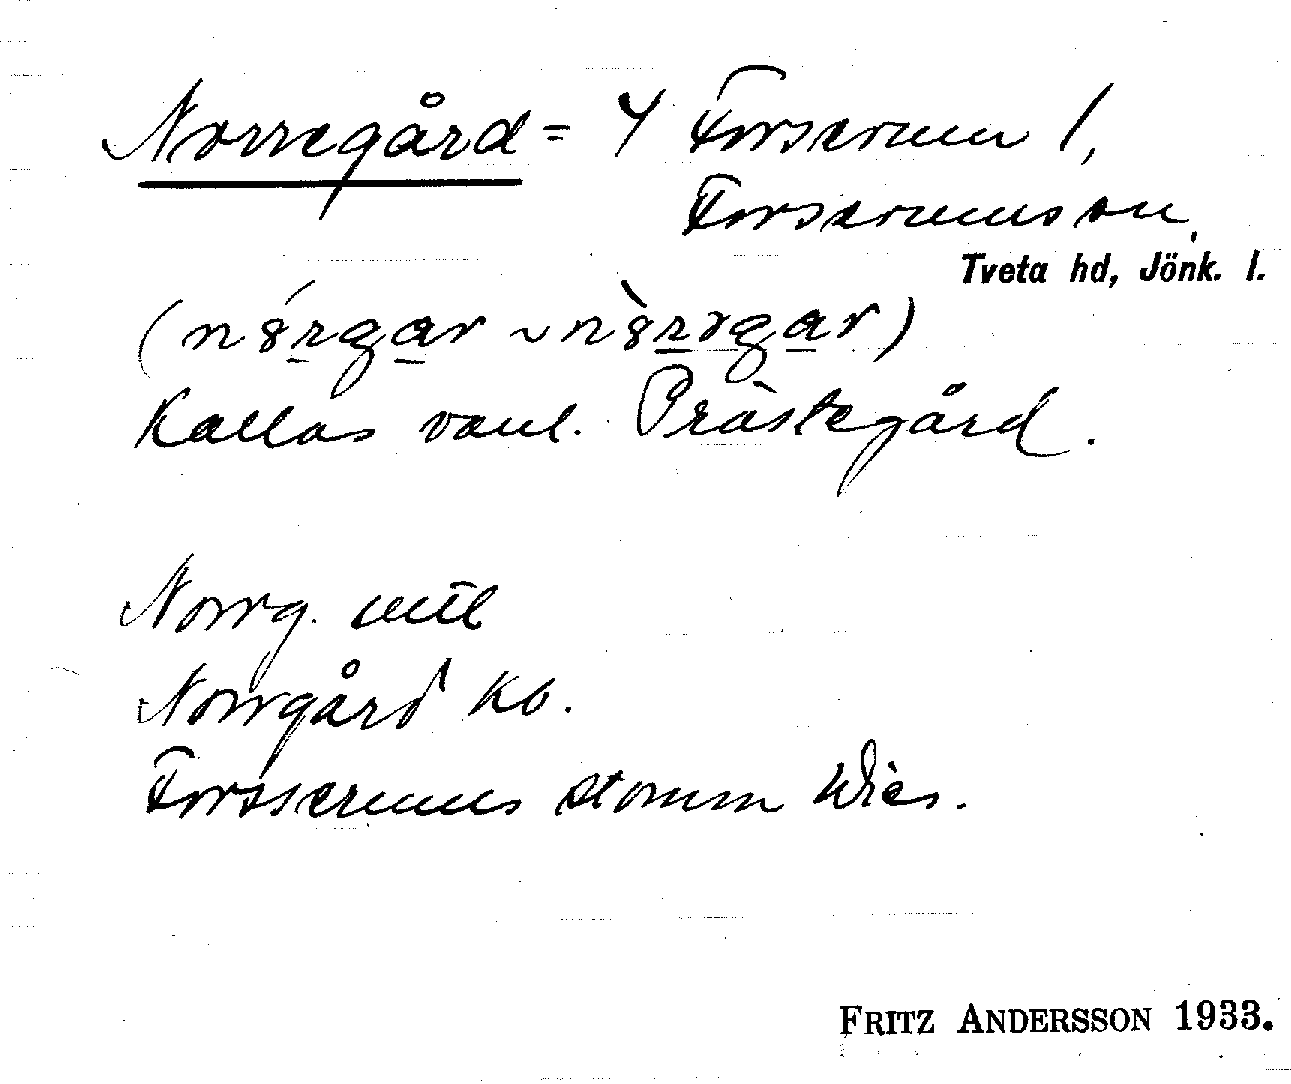 Norregård = Y Forserum 1,
Forserums sn,
Tveta hd, Jönk. l.
(n8rgar ~ n8rrəgar)
Kallas vanl. Prästegård.
Norrg. util
Norrgård kb.
Forsserums stomm Wies.
FRITZ ANDERSSON 1933.